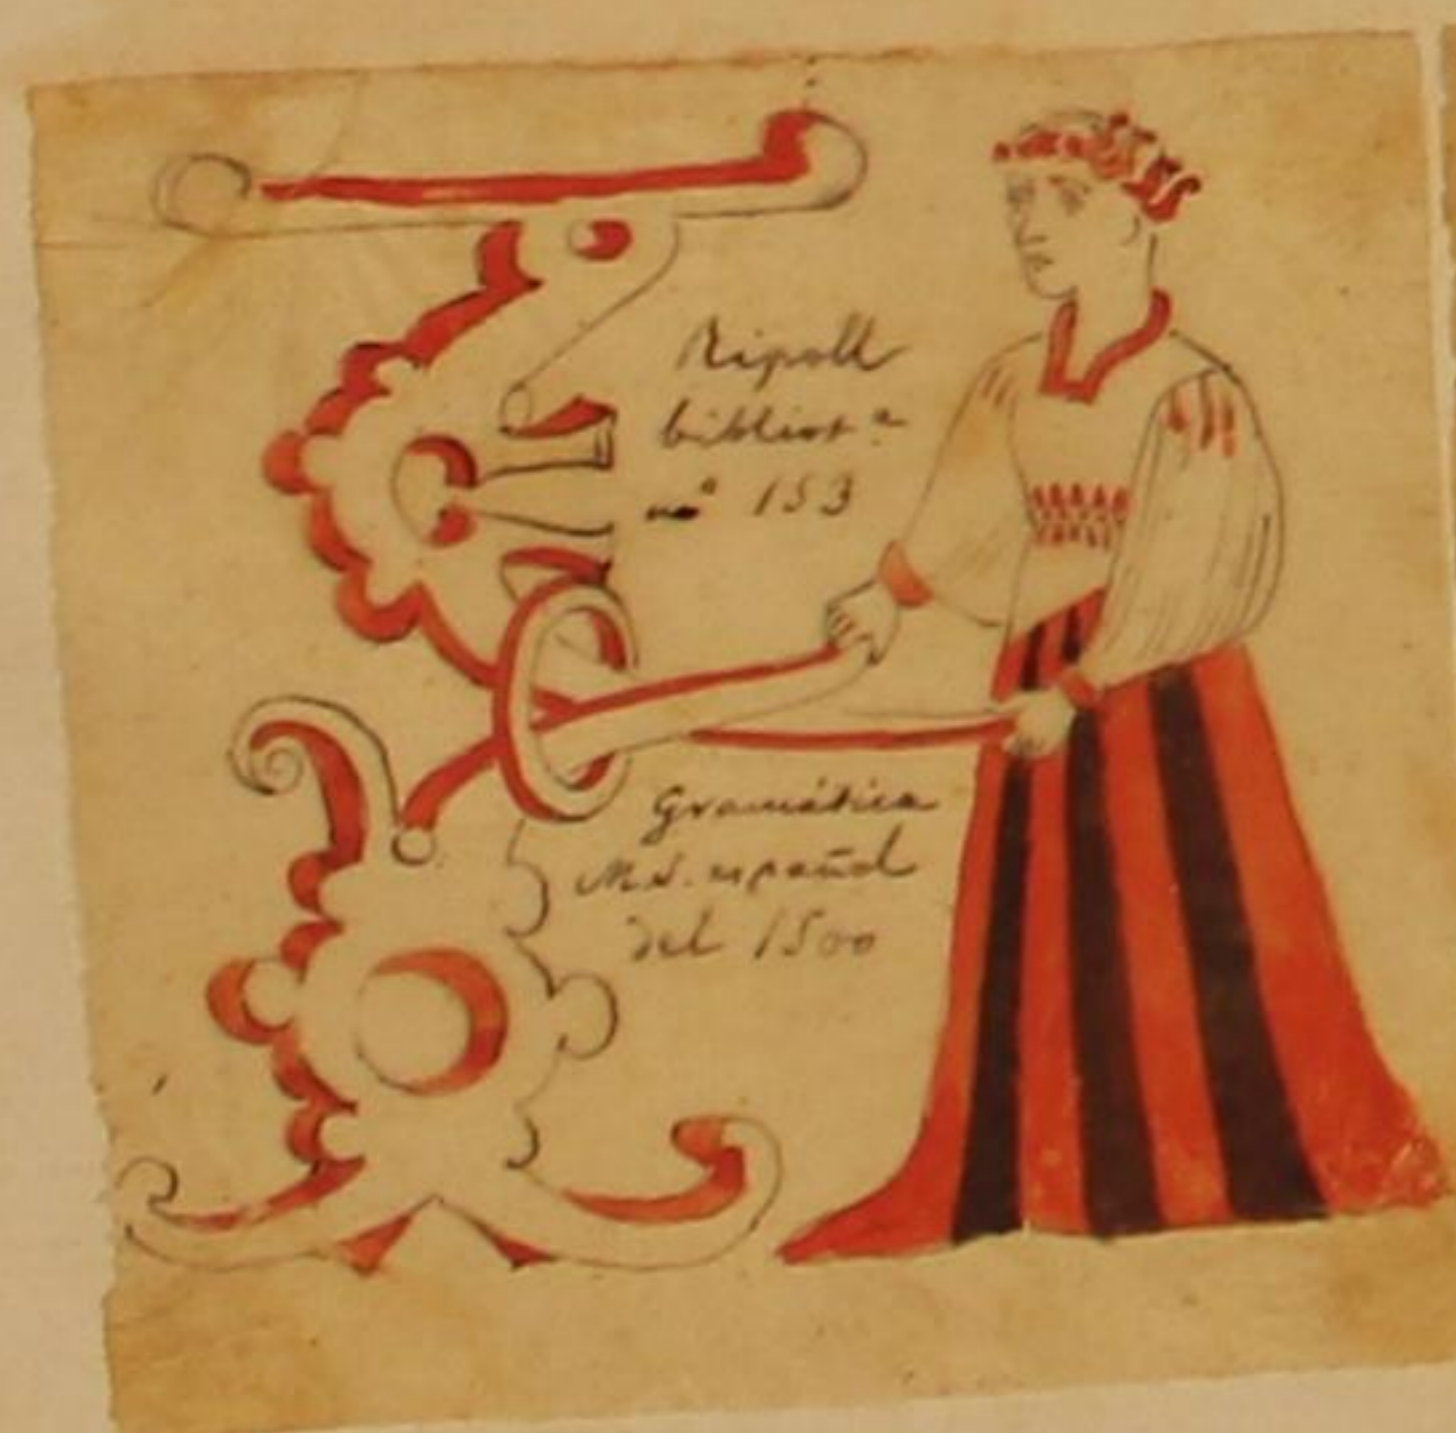 Ripoll
bibliot.ª
nº 153
Gramática
M.S. español
del 1500